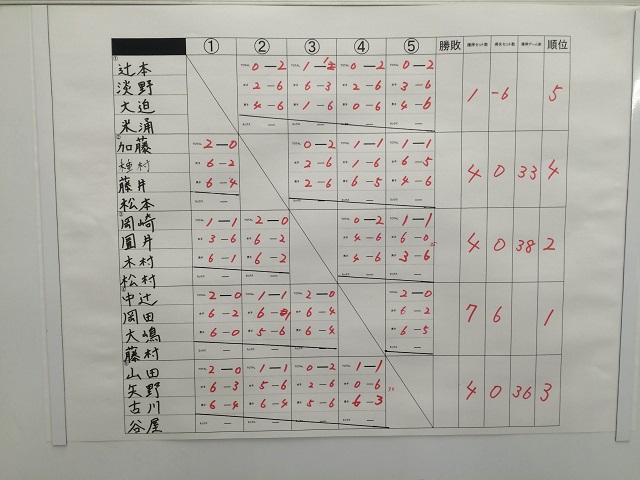 ① ② ③ ④ ⑤ 勝敗 順位
① 辻本 TOTAL 0-2 TOTAL 1-1 TOTAL 0-2 TOTAL 0-2
淡野 2-6 6-3 2-6 3-6 1 -6 5
大迫 4-6 1-6 0-6 4-6
米涌 - - - -
② 加藤 TOTAL 2-0 TOTAL 0-2 TOTAL 1-1 TOTAL 1-1
種村 6-2 2-6 1-6 6-5 4 0 33 4
藤井 6-4 2-6 6-5 4-6
松本 - - - -
③ 岡崎 TOTAL 1-1 TOTAL 2-0 TOTAL 0-2 TOTAL 1-1
圓井 3-6 6-2 4-6 6-0 4 0 38 2
木村 6-1 6-2 4-6 3-6
松村 - - - -
中辻 TOTAL 2-0 TOTAL 1-1 TOTAL 2-0 TOTAL 2-0
岡田 6-2 6-1 6-4 6-2 7 6 1
大嶋 6-0 5-6 6-4 6-5
藤村 - - - -
山田 TOTAL 2-0 TOTAL 1-1 TOTAL 0-2 TOTAL 1-1
矢野 6-3 5-6 2-6 0-6 4 0 36 3
古川 6-4 6-4 5-6 6-3
谷屋 - - - -